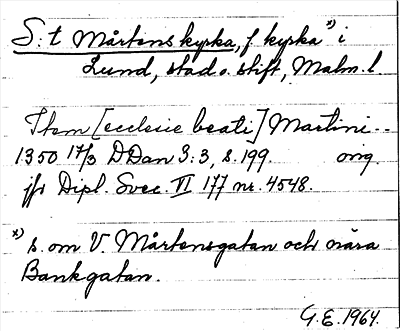 S:t Mårtens kyrka, f. kyrka x) i
Lund, stad o. stift, Malm. l.
Item [ecclesie beati] Martini--
1350 17/3 DDan 3:3, s. 199. orig.
jfr Dipl. Svec. VI 177 nr. 4548.
x) s. om V. Mårtensgatan och nära
Bankgatan.
G.E. 1964.